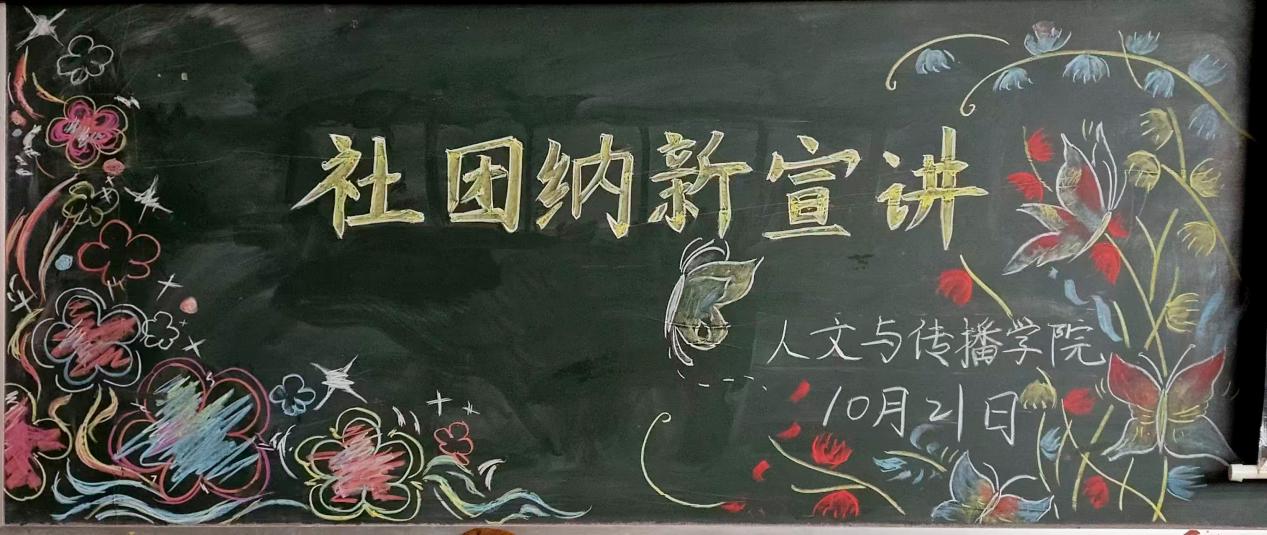 社团纳新宣讲
人文与传播学院
10月21日